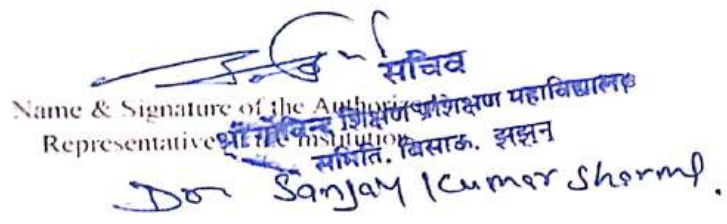 सचिव
Name & Signature of the Authorized
Representative of the Institution
श्री गोविन्द शिक्षण प्रशिक्षण महाविद्यालय
समिति. बिसाऊ. झुझुनू
Dr. Sanjay Kumar Sharma.